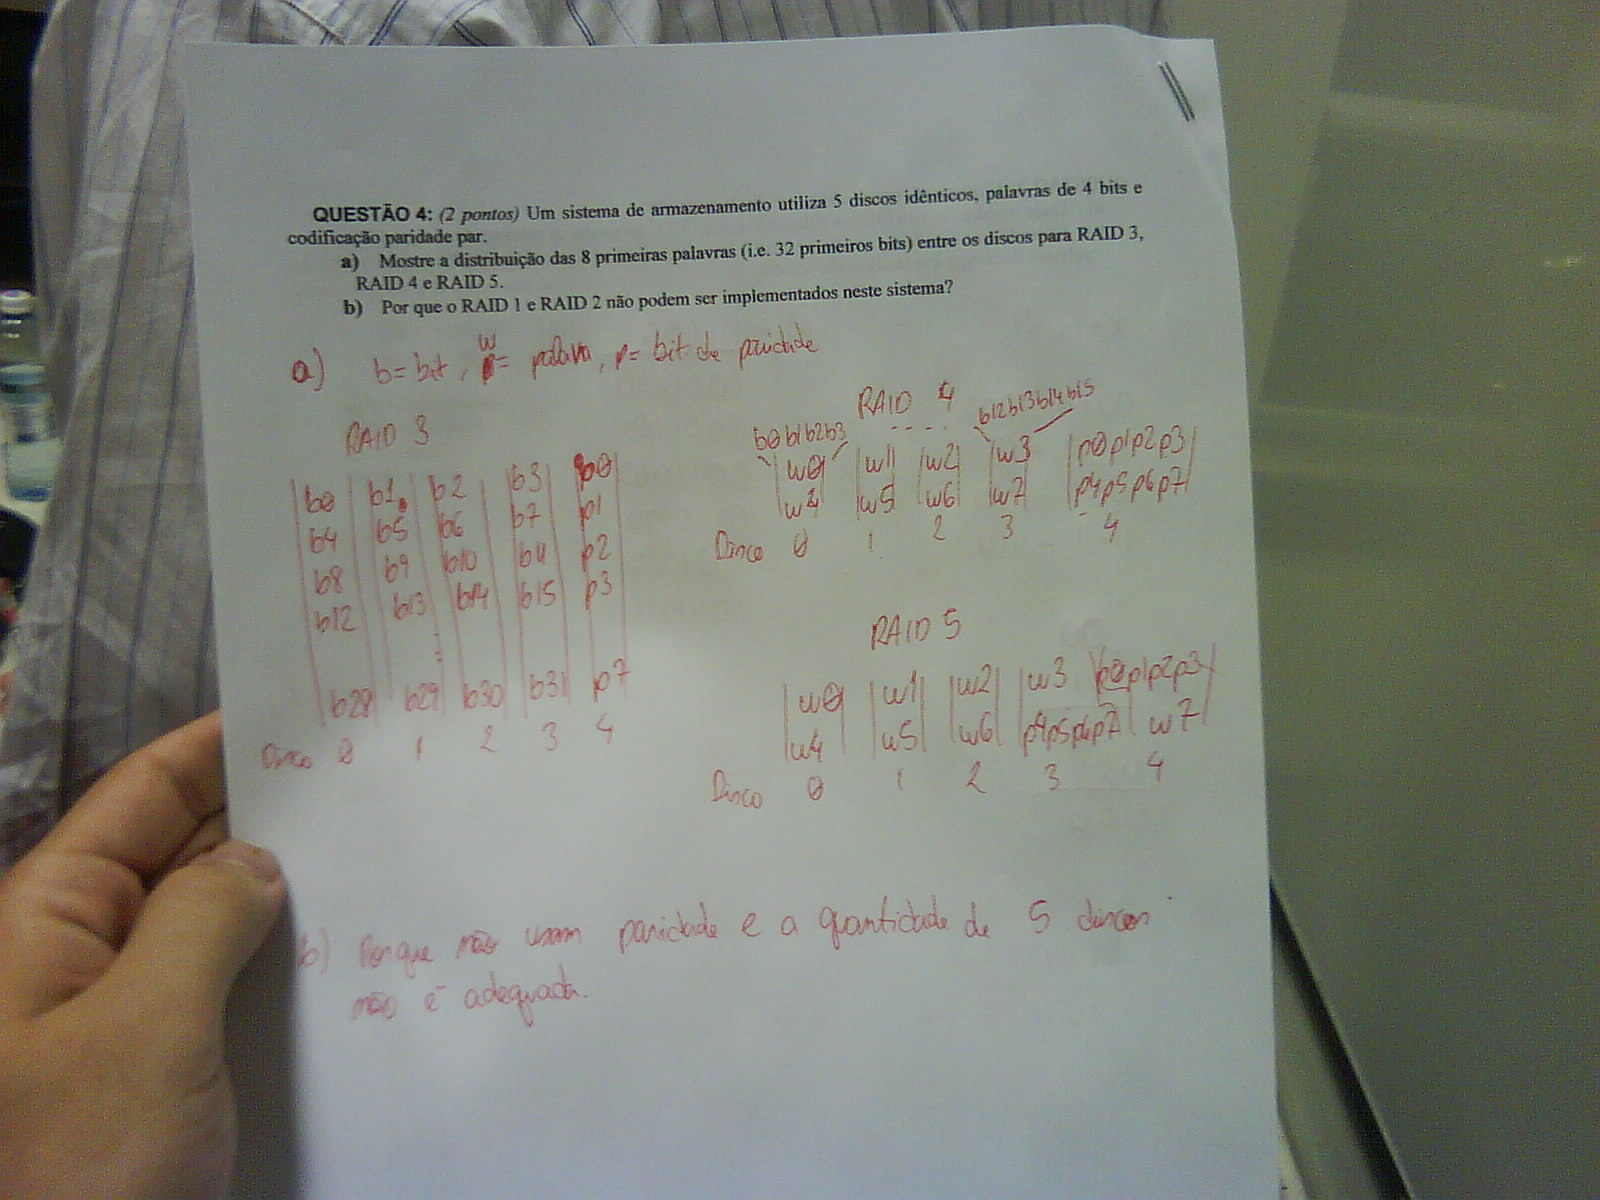 QUESTÃO 4: (2 pontos) Um sistema de armazenamento utiliza 5 discos idênticos, palavras de 4 bits e
codificação paridade par.
a) Mostre a distribuição das 8 primeiras palavras (i.e. 32 primeiros bits) entre os discos para RAID 3,
RAID 4 e RAID 5.
b) Por que o RAID 1 e RAID 2 não podem ser implementados neste sistema?
a) b=bit, w= palavra, p= bit de paridade
RAID 3
b0 b1 b2 b3 p0
b4 b5 b6 b7 p1
b8 b9 b10 b11 p2
b12 b13 b14 b15 p3
b28 b29 b30 b31 p7
Disco 0 1 2 3 4
RAID 4
b0b1b2b3 ---- b12b13b14b15
w0 w1 w2 w3 p0p1p2p3
w4 w5 w6 w7 p4p5p6p7
Disco 0 1 2 3 4
RAID 5
w0 w1 w2 w3 p0p1p2p3
w4 w5 w6 p4p5p6p7 w7
Disco 0 1 2 3 4
b) Porque não usam paridade e a quantidade de 5 discos
não é adequada.